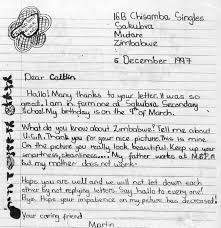 16B Chisamba Singles
Sakubva
Mutare
Zimbabwe
6 December 1997
Dear Caitlin
Hallo! Many thanks to your letter. It was so
great. I am in form one at Sakubva Secondary
School. My birthday is on the 9th of March.
What do you know about Zimbabwe? Tell me about
U.S.A. Thank you for your nice picture. This is mine.
On the picture you really look beautiful. Keep up your
smartness, cleanliness.... My father works at M.B.P.A
but my mother does not work.
Hope you are well and we will not let down each
other by not replying letters. Say hallo to every one!
Bye. Hope your impatience on my picture has decreased.
Your caring friend
Martin